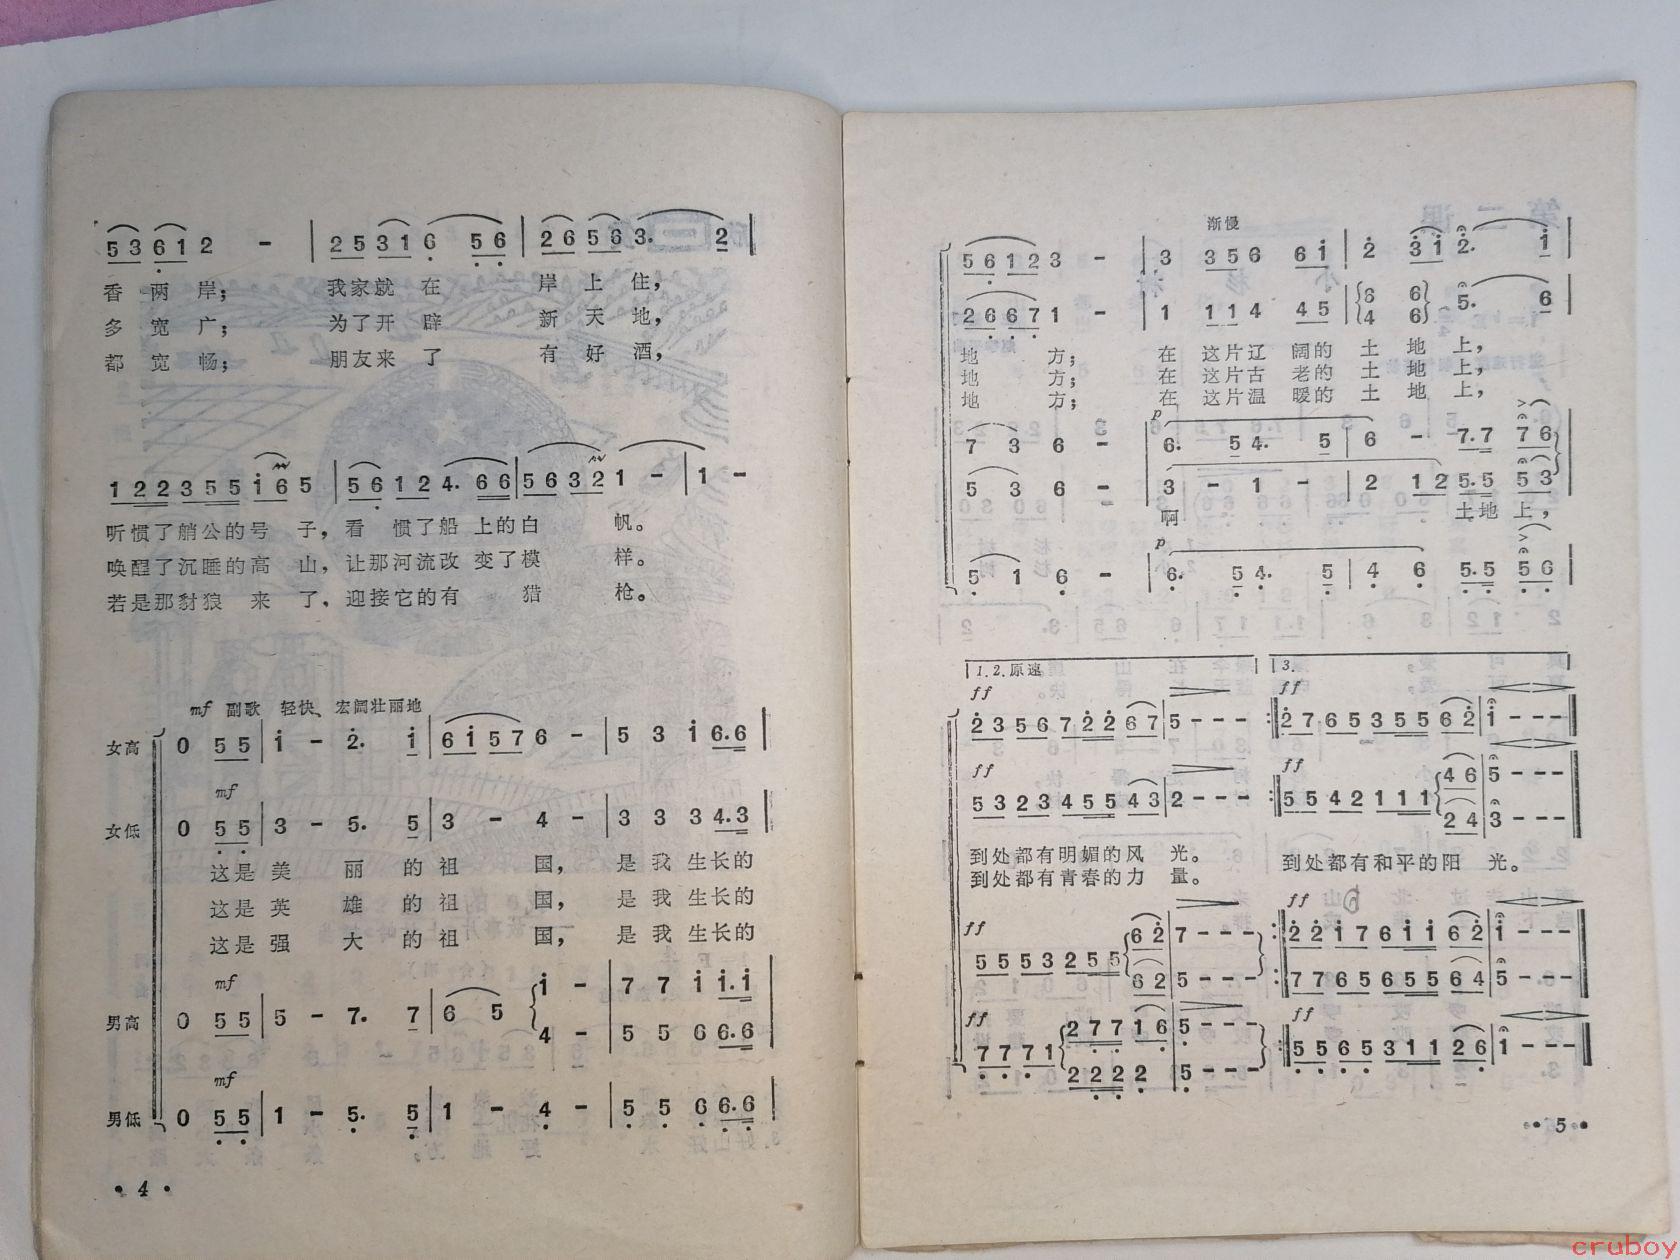 5 3 6 1 2 - | 2 5 3 1 6 5 6 | 2 6 5 6 3. 2 |
香 两 岸； 我家就 在 岸 上 住，
多 宽 广； 为了开 辟 新 天 地，
都 宽 畅； 朋友来 了 有 好 酒，
1 2 2 3 5 5 i 6 5 | 5 6 1 2 4. 6 6 | 5 6 3 2 1 - | 1 -
听惯了艄公的号 子，看 惯了船 上的白 帆。
唤醒了沉睡的高 山，让那河流改 变了模 样。
若是那豺狼 来 了，迎接它的有 猎 枪。
mf 副歌 轻快、宏阔壮丽地
女高 0 5 5 | i - 2. i | 6 i 5 7 6 - | 5 3 i 6.6 |
mf
女低 0 5 5 | 3 - 5. 5 | 3 - 4 - | 3 3 3 4.3 |
这是 美 丽 的 祖 国， 是 我 生长的
这是 英 雄 的 祖 国， 是 我 生长的
这是 强 大 的 祖 国， 是 我 生长的
mf
i - | 7 7 i i.i |
男高 0 5 5 | 5 - 7. 7 | 6 5
4 - | 5 5 6 6.6 |
mf
男低 0 5 5 | 1 - 5. 5 | 1 - 4 - | 5 5 6 6.6 |
• 4 •
渐慢
5 6 1 2 3 - | 3 3 5 6 6 i | 2 3 i 2. i |
2 6 6 7 1 - | 1 1 1 4 4 5 | {6 6} 5. 6 |
{4 6}
地 方； 在 这片辽 阔的 土 地 上，
地 方； 在 这片古 老的 土 地 上，
地 方； 在 这片温 暖的 土 地 上，
p
7 3 6 - | 6. 5 4. 5 | 6 - 7.7 7 6
5 3 6 - | 3 - 1 - | 2 1 2 5.5 5 3
啊 土地 上，
p
5 1 6 - | 6. 5 4. 5 | 4 6 5.5 5 6 |
1.2.原速 3.
ff ff
2 3 5 6 7 2 2 6 7 | 5 - - - :‖ 2 7 6 5 3 5 5 6 2 | i - - - ‖
ff ff
4 6 | 5 - - -
5 3 2 3 4 5 5 4 3 | 2 - - - :‖ 5 5 4 2 1 1 1
2 4 | 3 - - -
到处都有明媚的风 光。 到处都有和平的阳 光。
到处都有青春的力 量。
ff ff
6 2 | 7 - - - :‖ 2 2 i 7 6 i i 6 2 | i - - - ‖
5 5 5 3 2 5 5
6 2 | 5 - - - 7 7 6 5 6 5 5 6 4 | 5 - - -
ff ff
2 7 7 1 6 | 5 - - -
7 7 7 1 5 5 6 5 3 1 1 2 6 | 1 - - - ‖
2 2 2 2 2 | 5 - - -
• 5 •
cruboy